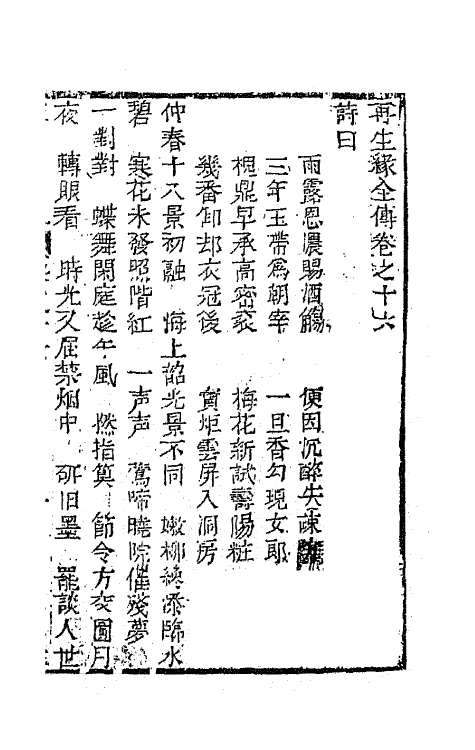 再生緣全傳卷之十六
詩曰
雨露恩濃賜酒觴　便因沉醉失疎
三年玉帶為朝宰　一旦香勾現女郎
槐鼎早承高密裒　梅花新試壽陽粧
幾番卸却衣冠後　寳炬雲屏入洞房
仲春十八景初融　海上韶光景不同　嫩柳綠添臨水
碧　寒花未發照階紅　一声声　鶯啼曉院催殘夢
一對對　蝶舞閑庭趁午風　撚指算　節令方交圓月
夜　轉眼看　時光又届禁烟中　研旧墨　罷談人世